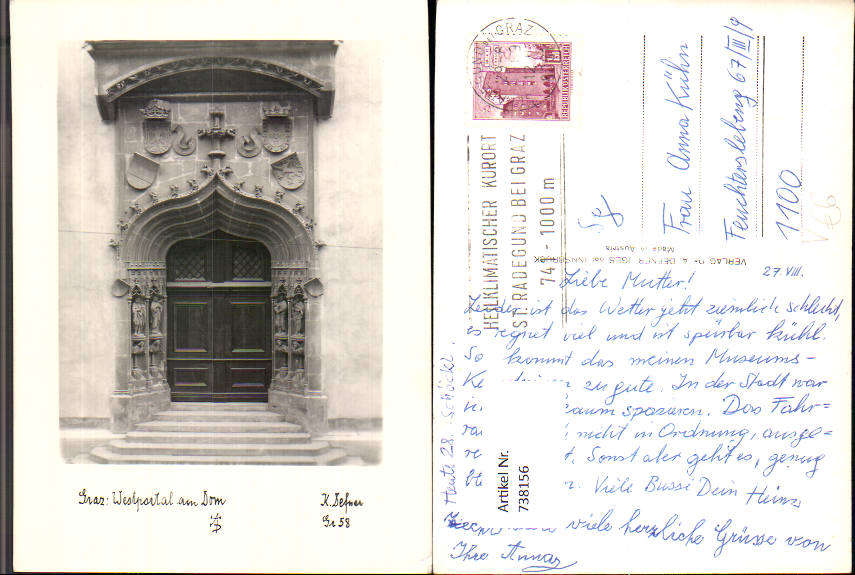 Graz: Westportal am Dom
K. Defner
Gr 58
GRAZ
REPUBLIK ÖSTERREICH
HEILKLIMATISCHER KURORT
ST. RADEGUND BEI GRAZ
- 1000 m
Frau Anna Kühn
Feuchterslebeng 67/III/9
1100
VERLAG DEFNER IGLS bei INNSBRUCK
Made in Austria
27. VIII.
Liebe Mutter!
Leider ist das Wetter jetzt ziemlich schlecht,
es regnet viel und ist spürbar kühl.
So kommt das meinen Museums-
zu gute. In der Stadt war
kaum spazieren. Das Fahr=
nicht in Ordnung, ausge-
Sonst aber geht es, genug
Viele Bussi Dein Heinz
Heute 28. Schöckl.
viele herzliche Grüsse von
Ihre
Artikel Nr.
738156